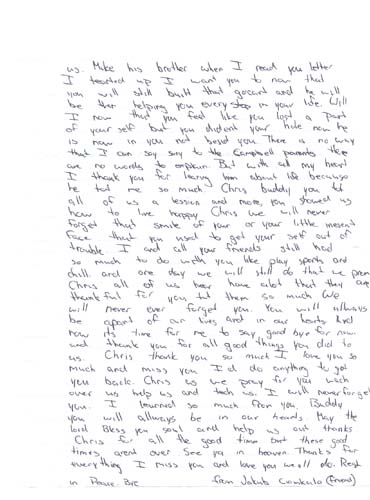 us. Make his brother when I read you letter
I tearted up I want you to now that
you will still built that gocard and he will
be ther helping you every step in your life. Will
I now that you feel like you lost a part
of your self but you dident your hole now he
is now in you not besid you. There is no way
that I can say sory to the Campbell parents there
are no words to explain. But with all my heart
I thank you for learing him about life because
he tot me so much Chris buddy you tot
all of us a lession and more, you showed us
how to live happy. Chris we will never
forget that smile of your or your little inesent
face that you used to get your self out of
trouble. I and all your friends still had
so much to do with you like play sports and
chill. and one day we will still do that we prom
Chris all of us hear have alot that they are
thankful for you tot them so much We
will never ever forget you. You will allways
be apart of our lives and in our hearts. And
now its time for me to say good bye for now
and thank you for all good things you did to
us. Chris thank you so much I love you so
much and miss you I'd do anything to get
you back. Chris as we pray for you wach
over us help us and tech us. I will never forget
you. I learned so much from you. Buddy
you will allways be in our hearts May the
lord Bless you soul and help us out thanks
Chris for all the good time but these good
times arent over See ya in heaven. Thanks for
everything I miss you and love you we all do. Rest
in Peace. Bye from Jakub (friend)